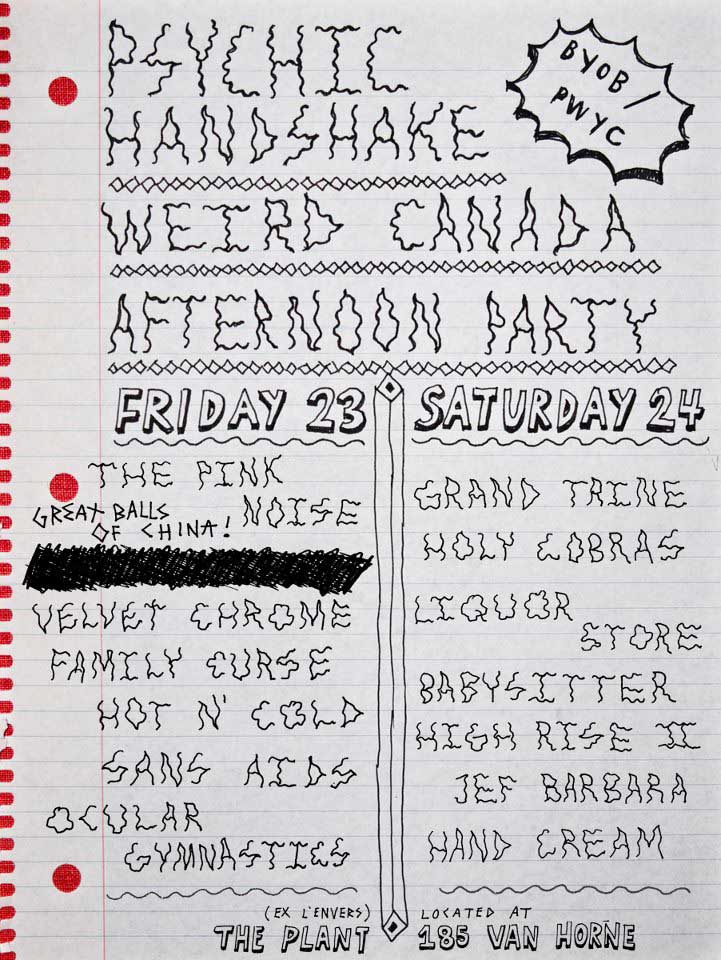 PSYCHIC
HANDSHAKE
BYOB/
PWYC
WEIRD CANADA
AFTERNOON PARTY
FRIDAY 23
THE PINK
NOISE
GREAT BALLS
OF CHINA!
VELVET CHROME
FAMILY CURSE
HOT N' COLD
SANS AIDS
OCULAR
GYMNASTICS
SATURDAY 24
GRAND TRINE
HOLY COBRAS
LIQUOR
STORE
BABYSITTER
HIGH RISE II
JEF BARBARA
HAND CREAM
(EX L'ENVERS)
THE PLANT
LOCATED AT
185 VAN HORNE